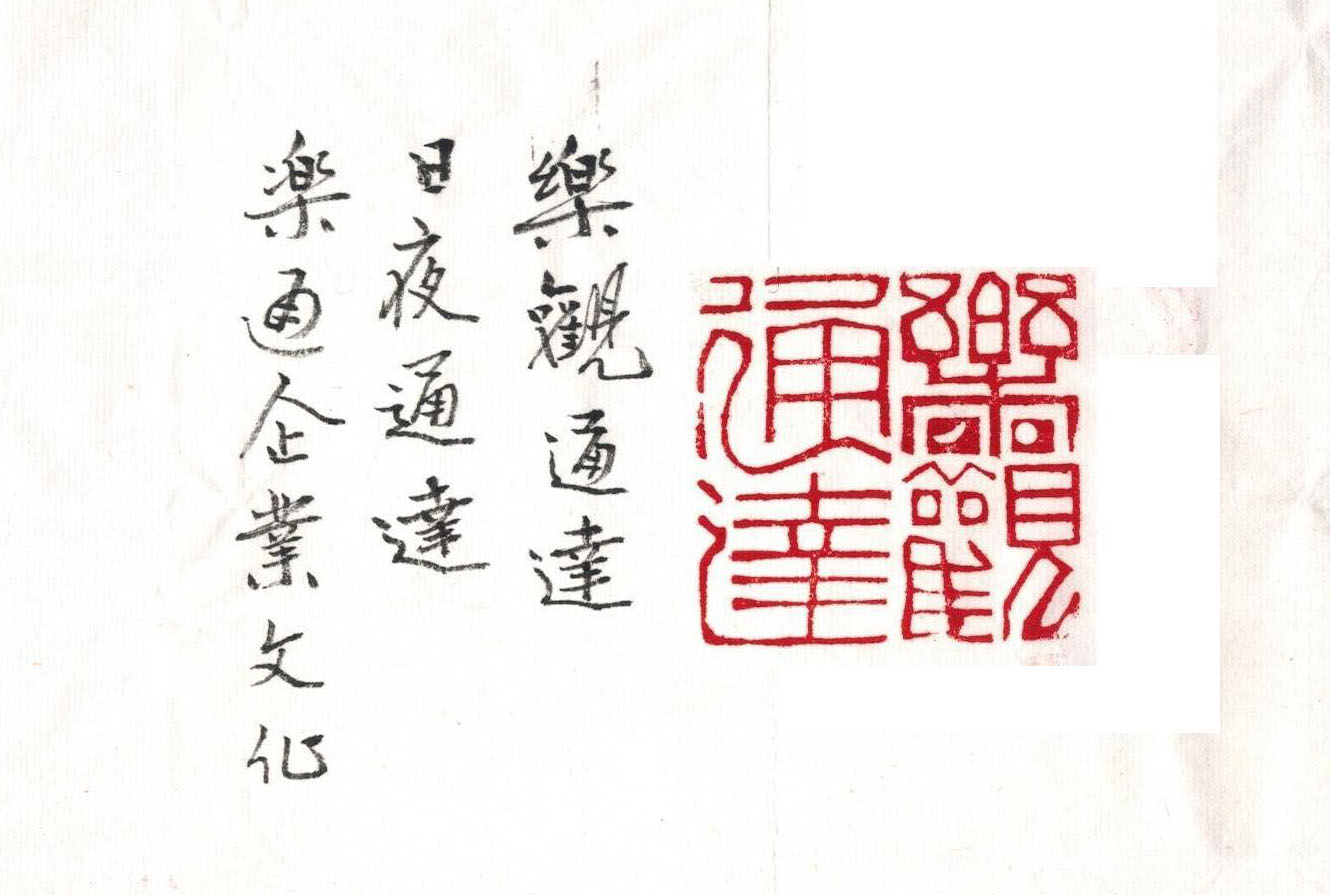 樂觀
通達
樂觀通達
日夜通達
楽通企業文化